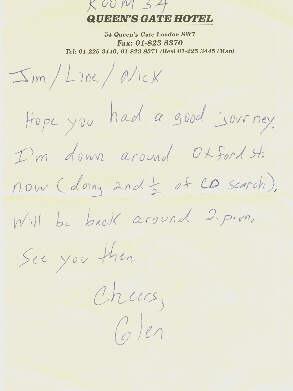 ROOM 34
QUEEN'S GATE HOTEL
54 Queen's Gate London SW7
Fax: 01-823 8370
Tel: 01-225 3440, 01-823 8371 (Res) 01-225 3445 (Man)
Jim / Line / Nick
Hope you had a good journey.
I'm down around Oxford st.
now (doing 2nd ½ of CD search).
Will be back around 2.p.m.
See you then
Cheers,
Glen